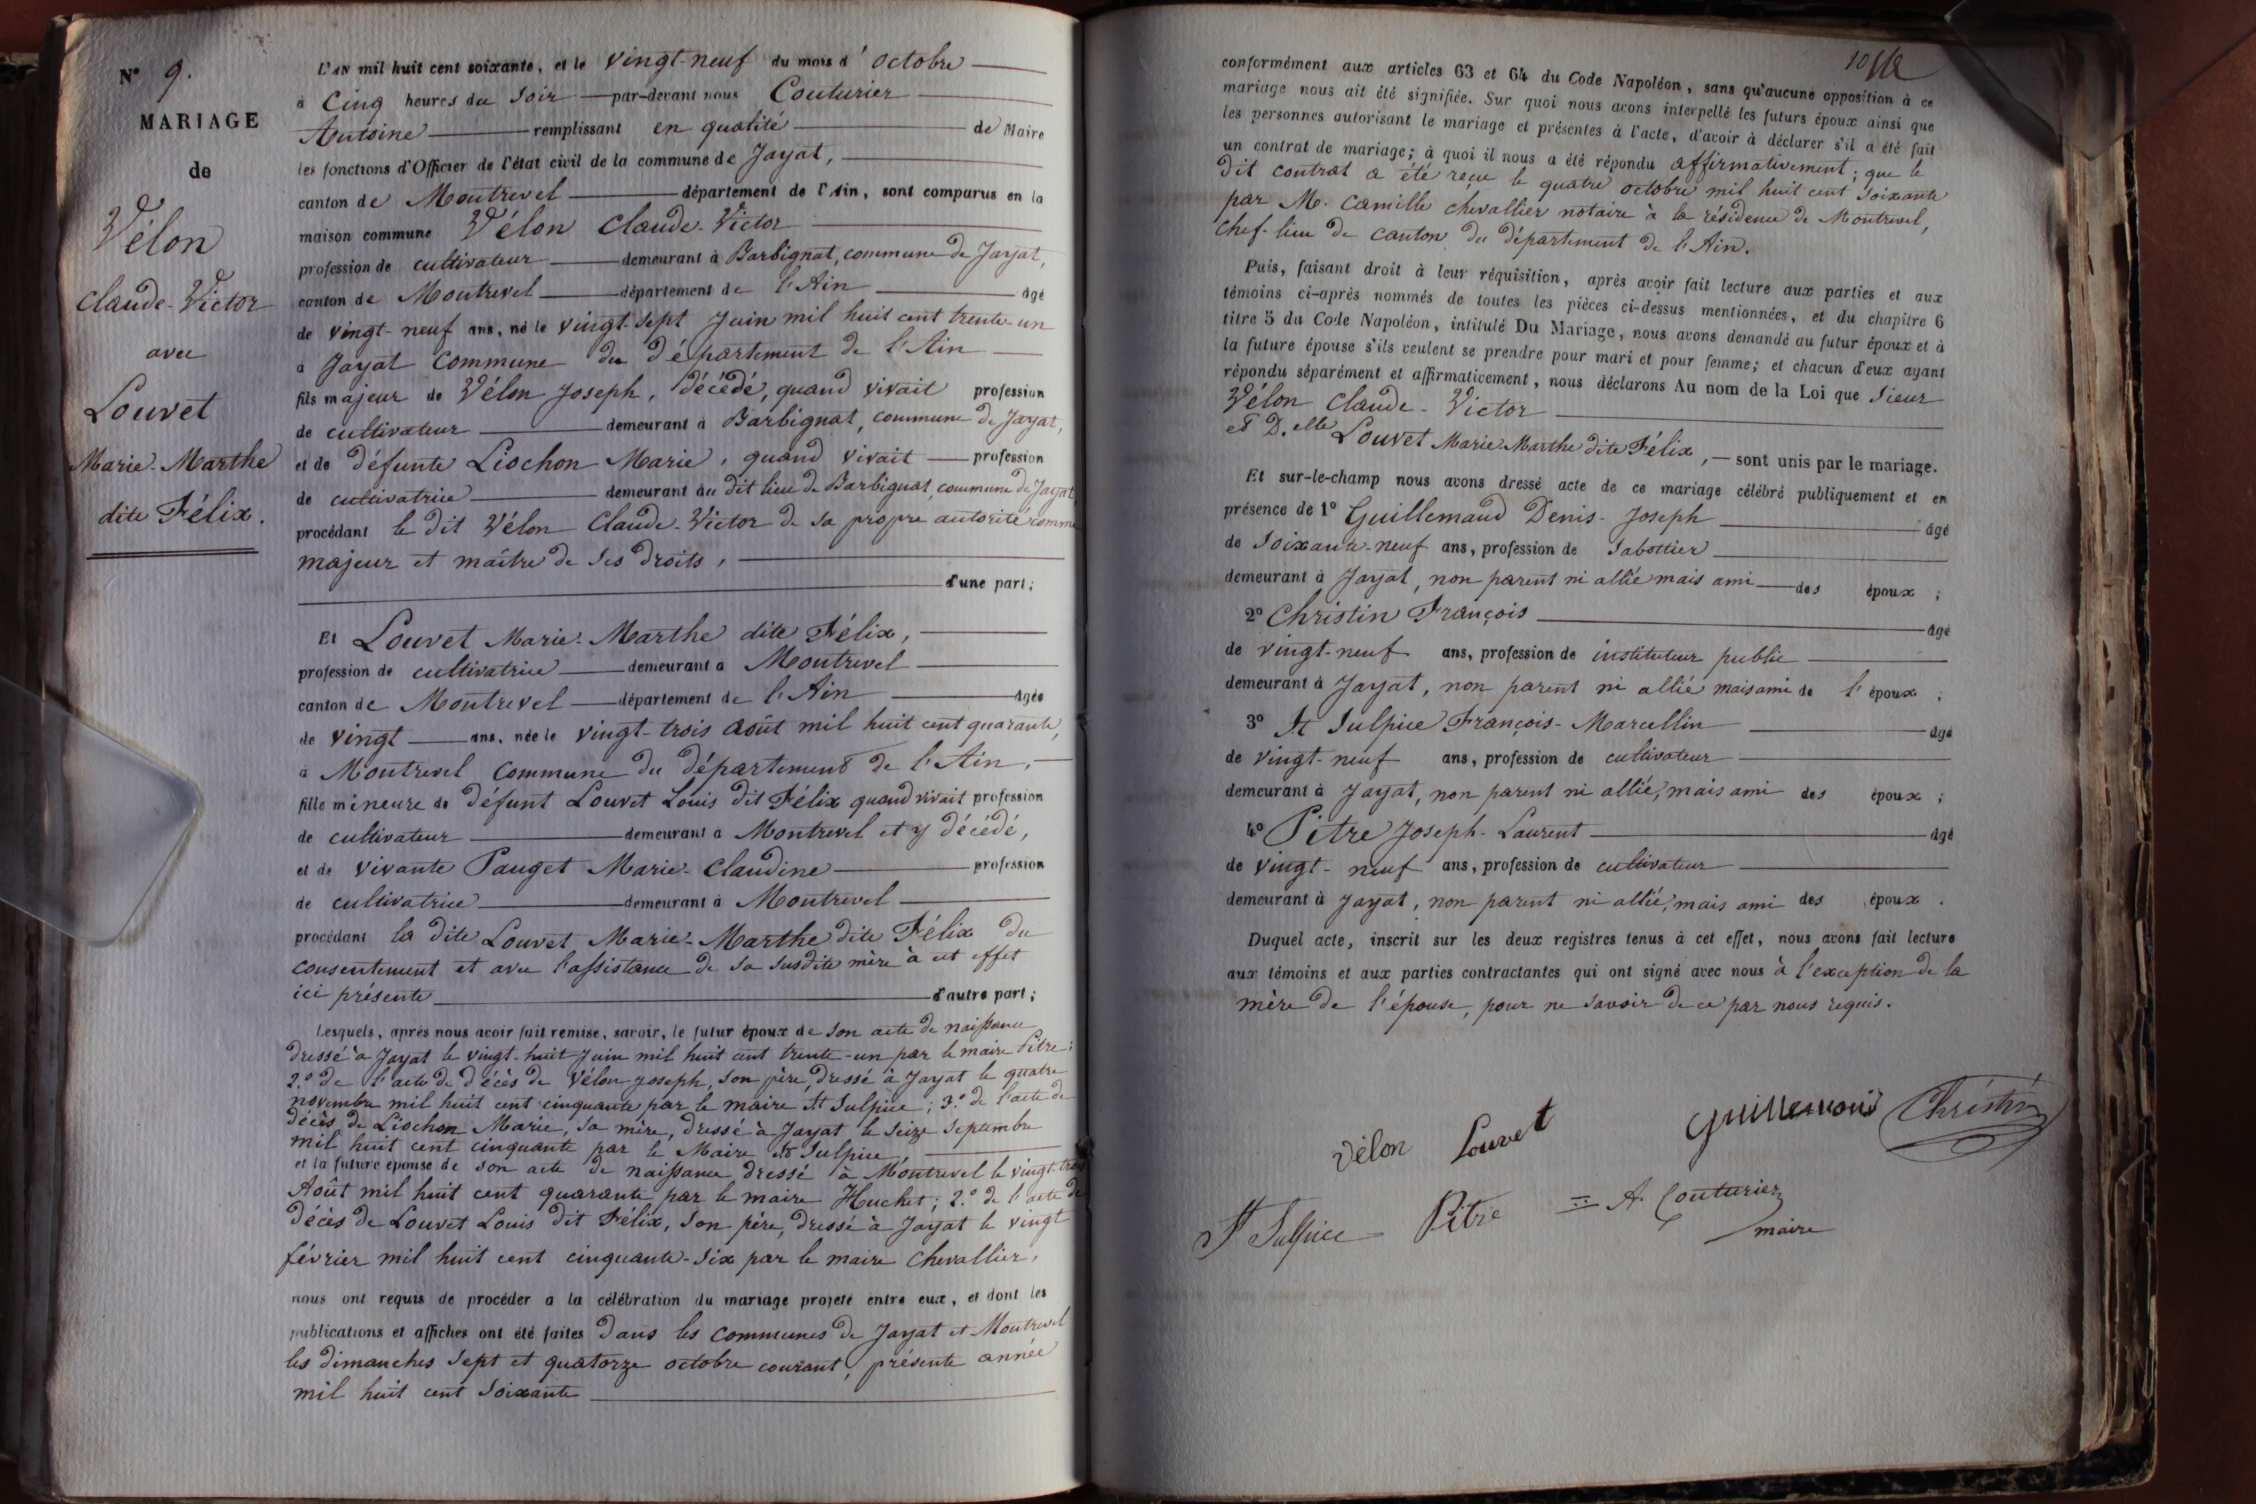 N° 9.
MARIAGE
de
Vélon
Claude-Victor
avec
Louvet
Marie-Marthe
dite Félix.
L'AN mil huit cent soixante, et le vingt-neuf du mois d'octobre
à cinq heures du soir par-devant nous Couturier
Antoine remplissant en qualité de Maire
les fonctions d'Officier de l'état civil de la commune de Jayat,
canton de Montrevel département de l'Ain, sont comparus en la
maison commune Vélon Claude-Victor
profession de cultivateur demeurant à Barbignat, commune de Jayat,
canton de Montrevel département de l'Ain âgé
de vingt-neuf ans, né le vingt-sept Juin mil huit cent trente-un
à Jayat commune du département de l'Ain
fils majeur de Vélon Joseph, décédé, quand vivait profession
de cultivateur demeurant à Barbignat, commune de Jayat,
et de défunte Liochon Marie, quand vivait profession
de cultivatrice demeurant au dit lieu de Barbignat, commune de Jayat
procédant le dit Vélon Claude-Victor de sa propre autorité comme
majeur et maître de ses droits,
d'une part;
Et Louvet Marie-Marthe dite Félix,
profession de cultivatrice demeurant à Montrevel
canton de Montrevel département de l'Ain âgée
de vingt ans, née le vingt-trois août mil huit cent quarante,
à Montrevel commune du département de l'Ain,
fille mineure de défunt Louvet Louis dit Félix quand vivait profession
de cultivateur demeurant à Montrevel et y décédé,
et de vivante Pauget Marie-Claudine profession
de cultivatrice demeurant à Montrevel
procédant la dite Louvet Marie-Marthe dite Félix du
consentement et avec l'assistance de sa susdite mère à cet effet
ici présente d'autre part;
Lesquels, après nous avoir fait remise, savoir, le futur époux de son acte de naissance
dressé à Jayat le vingt-huit Juin mil huit cent trente-un par le maire Pitre;
2.° de l'acte de décès de Vélon Joseph, son père, dressé à Jayat le quatre
novembre mil huit cent cinquante par le maire St Sulpice; 3.° de l'acte de
décès de Liochon Marie, sa mère, dressé à Jayat le seize septembre
mil huit cent cinquante par le Maire St Sulpice,
et la future épouse de son acte de naissance dressé à Montrevel le vingt-trois
Août mil huit cent quarante par le maire Huchet; 2.° de l'acte de
décès de Louvet Louis dit Félix, son père, dressé à Jayat le vingt
février mil huit cent cinquante-six par le maire Chevallier,
nous ont requis de procéder à la célébration du mariage projeté entre eux, et dont les
publications et affiches ont été faites dans les communes de Jayat et Montrevel
les dimanches sept et quatorze octobre courant, présente année
mil huit cent soixante
10
conformément aux articles 63 et 64 du Code Napoléon, sans qu'aucune opposition à ce
mariage nous ait été signifiée. Sur quoi nous avons interpellé les futurs époux ainsi que
les personnes autorisant le mariage et présentes à l'acte, d'avoir à déclarer s'il a été fait
un contrat de mariage; à quoi il nous a été répondu affirmativement; que le
dit contrat a été reçu le quatre octobre mil huit cent soixante
par M. Camille Chevallier notaire à la résidence de Montrevel,
chef-lieu de canton du département de l'Ain.
Puis, faisant droit à leur réquisition, après avoir fait lecture aux parties et aux
témoins ci-après nommés de toutes les pièces ci-dessus mentionnées, et du chapitre 6
titre 5 du Code Napoléon, intitulé Du Mariage, nous avons demandé au futur époux et à
la future épouse s'ils veulent se prendre pour mari et pour femme; et chacun d'eux ayant
répondu séparément et affirmativement, nous déclarons Au nom de la Loi que Sieur
Vélon Claude-Victor
et D.elle Louvet Marie-Marthe dite Félix, sont unis par le mariage.
Et sur-le-champ nous avons dressé acte de ce mariage célébré publiquement et en
présence de 1° Guillemaud Denis-Joseph âgé
de soixante-neuf ans, profession de sabottier
demeurant à Jayat, non parent ni allié mais ami des époux;
2° Christin François âgé
de vingt-neuf ans, profession de instituteur public
demeurant à Jayat, non parent ni allié mais ami de l'époux;
3° St Sulpice François-Marcellin âgé
de vingt-neuf ans, profession de cultivateur
demeurant à Jayat, non parent ni allié, mais ami des époux;
4° Pitre Joseph-Laurent âgé
de vingt-neuf ans, profession de cultivateur
demeurant à Jayat, non parent ni allié, mais ami des époux.
Duquel acte, inscrit sur les deux registres tenus à cet effet, nous avons fait lecture
aux témoins et aux parties contractantes qui ont signé avec nous à l'exception de la
mère de l'épouse, pour ne savoir de ce par nous requis.
Vélon Louvet Guillemaud Christin
St Sulpice Pitre A. Couturier
maire